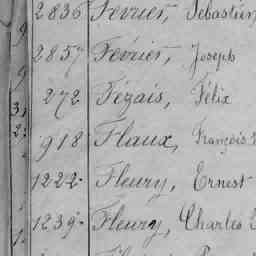 2836 Fevrier, Sébastien
2857 Février, Joseph
272 Fézais, Félix
918 Flaux, François
1222 Fleury, Ernest
1239 Fleury, Charles